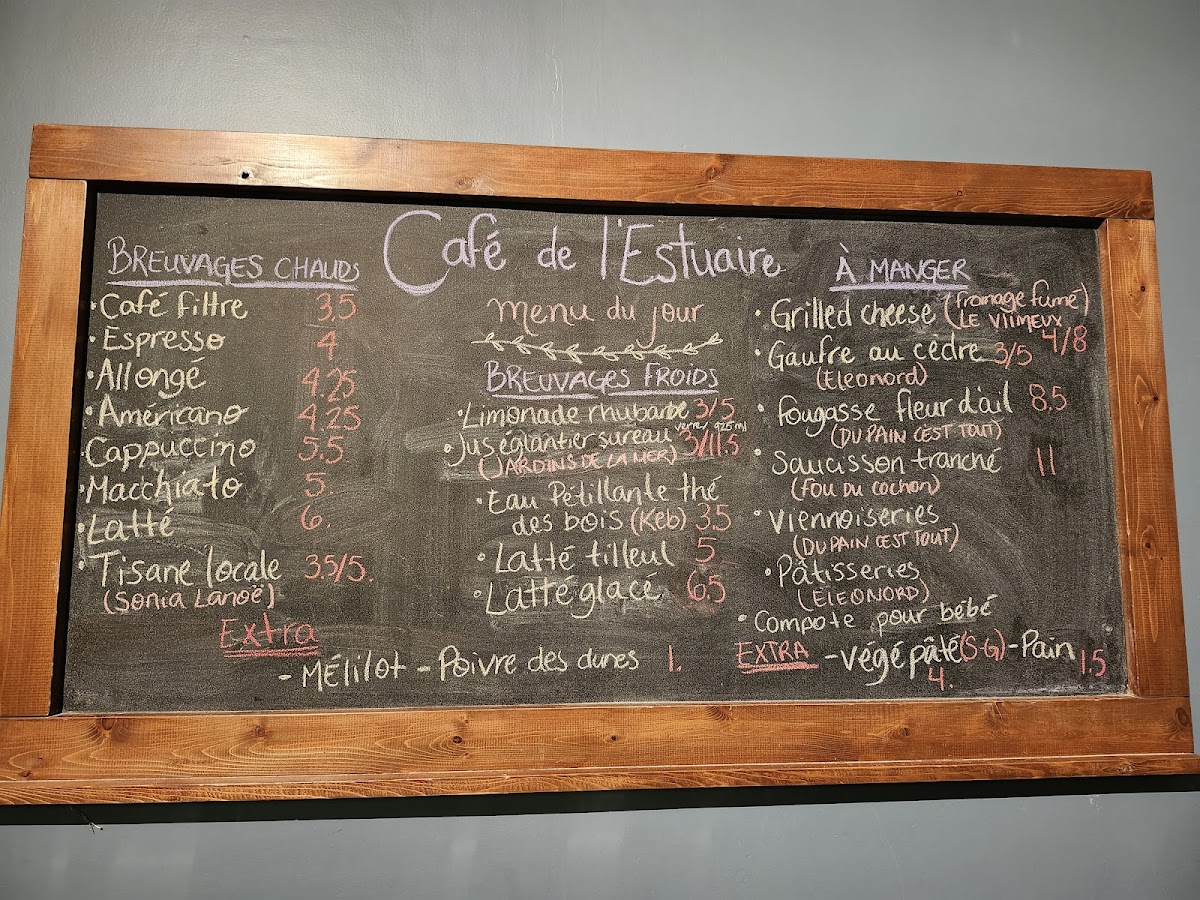 Café de l'Estuaire
menu du jour
BREUVAGES CHAUDS
• Café filtre 3,5
• Espresso 4
• Allongé 4.25
• Américano 4.25
• Cappuccino 5.5
• Macchiato 5.
• Latté 6.
• Tisane locale 3.5/5.
(Sonia Lanoë)
Extra
- Mélilot - Poivre des dunes 1.
BREUVAGES FROIDS
• Limonade rhubarbe 3/5
• Jus églantier sureau verre/ 925 ml 3/11.5
(JARDINS DE LA MER)
• Eau Pétillante thé
des bois (Keb) 3.5
• Latté tilleul 5
• Latté glacé 6.5
À MANGER
• Grilled cheese (fromage fumé)
(LE VIIMEUX 4/8
• Gaufre au cèdre 3/5
(Eleonord)
• fougasse fleur d'ail 8,5
(DU PAIN C'EST TOUT)
• Saucisson tranché 11
(FOU DU COCHON)
• Viennoiseries
(DU PAIN C'EST TOUT)
• Pâtisseries
(ELEONORD)
• Compote pour bébé
EXTRA - végé pâté (S-G) - Pain 1.5
4.